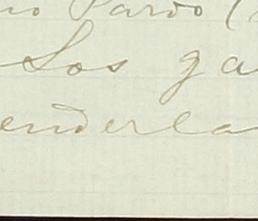 no Pardo (
Los ga
enderla